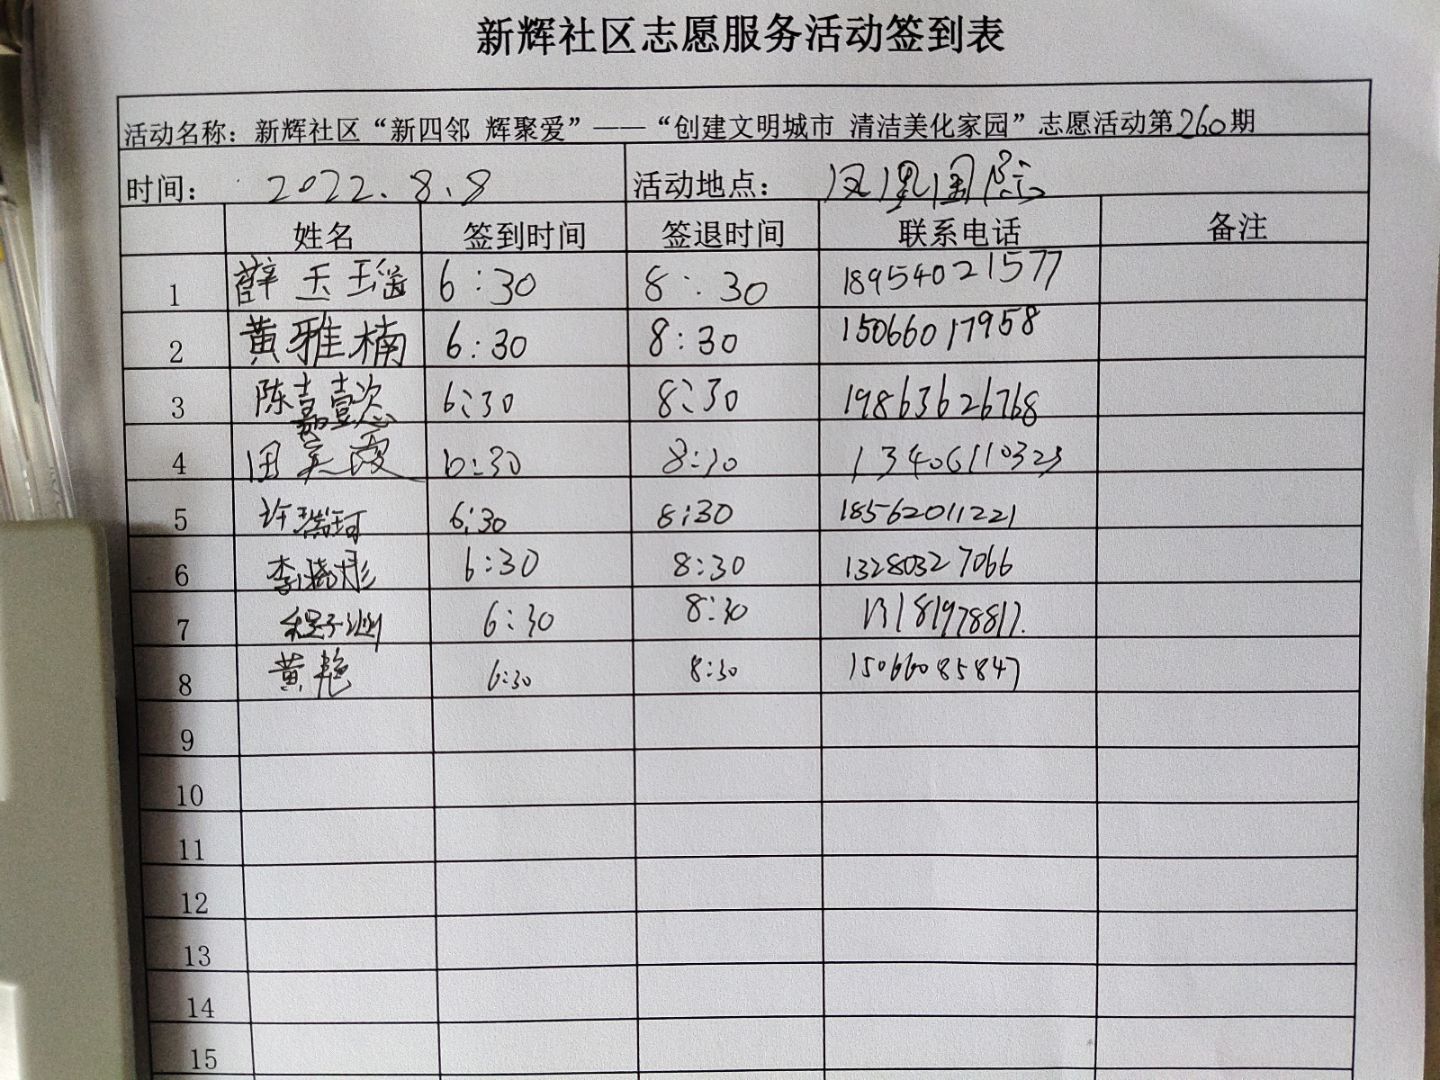 新辉社区志愿服务活动签到表
活动名称：新辉社区“新四邻 辉聚爱”——“创建文明城市 清洁美化家园”志愿活动第260期
时间： 2022.8.8 活动地点： 凤凰国际
姓名 签到时间 签退时间 联系电话 备注
1 薛玉瑶 6:30 8:30 18954021577
2 黄雅楠 6:30 8:30 15066017958
3 陈嘉懿 6:30 8:30 19863626768
4 田美霞 6:30 8:30 13406110323
5 许瑞珂 6:30 8:30 18562011221
6 李晓彤 6:30 8:30 13280327066
7 程子 6:30 8:30 13181978817.
8 黄艳 6:30 8:30 15066085847
9
10
11
12
13
14
15